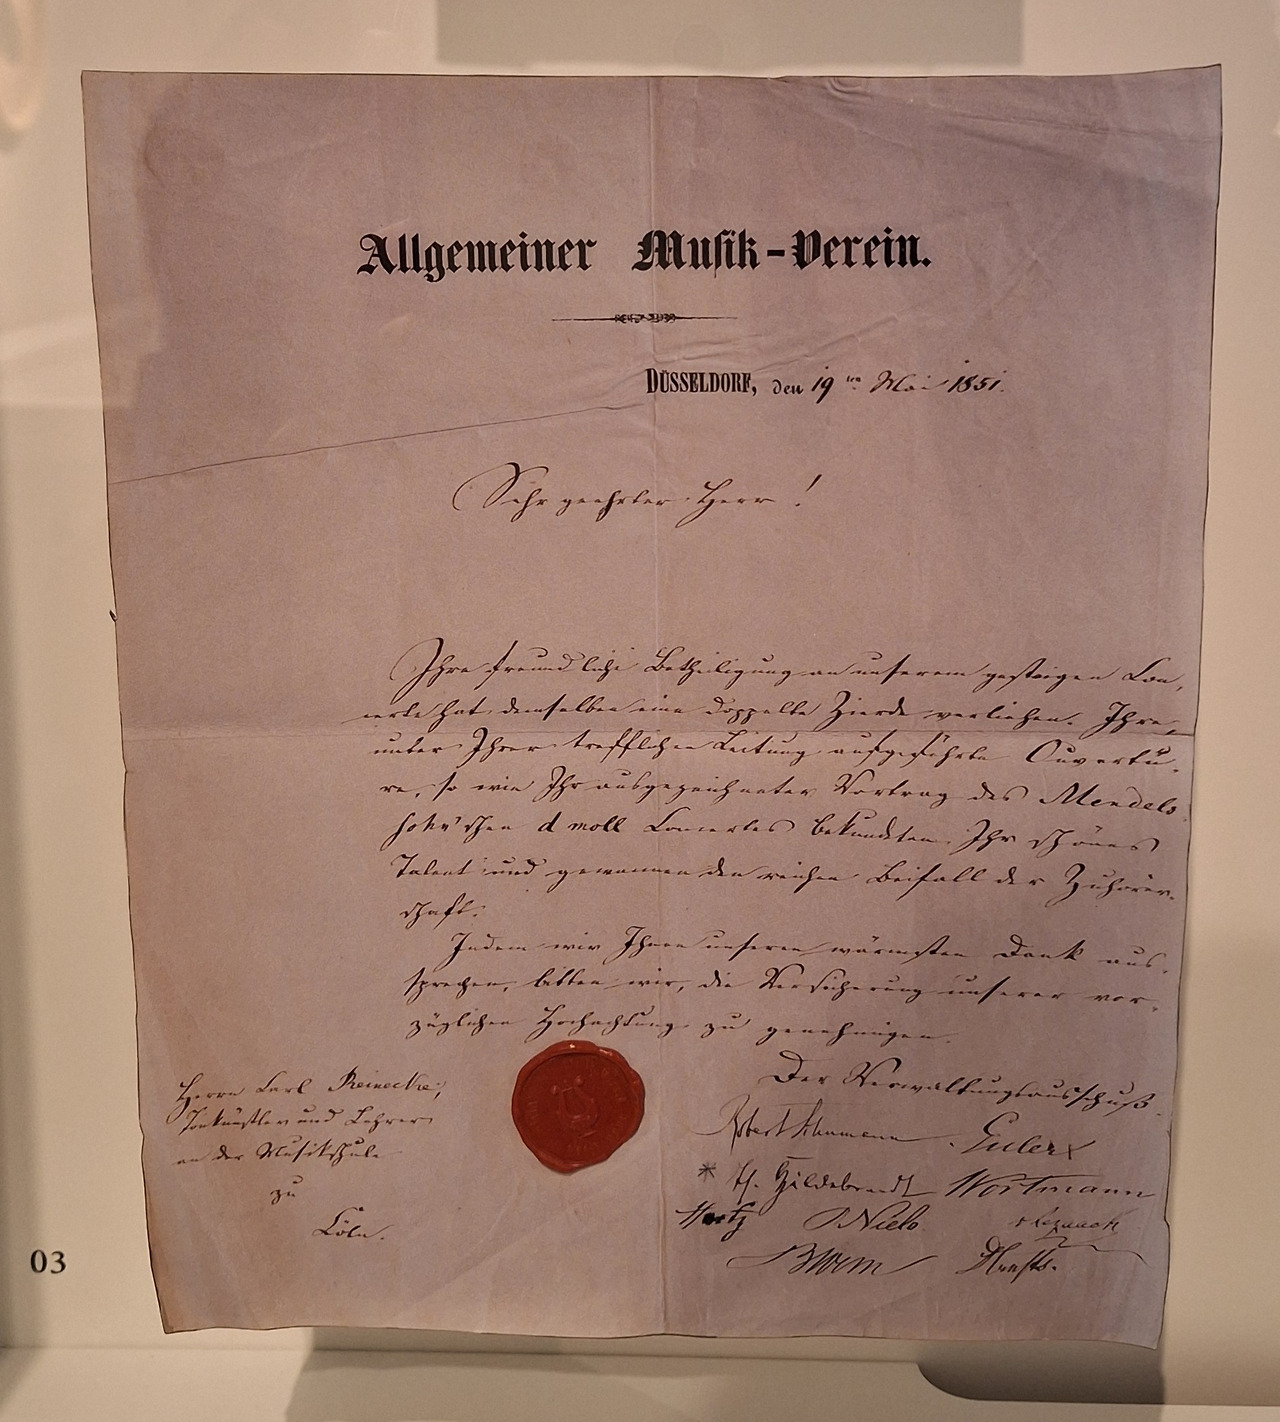 Allgemeiner Musik-Verein.
DÜSSELDORF, den 19ten Mai 1851.
Sehr geehrter Herr!
Ihre freundliche Betheiligung an unserem gestrigen Con-
certe hat demselben eine doppelte Zierde verliehen. Ihre,
unter Ihrer trefflichen Leitung aufgeführte Ouvertü-
re, so wie Ihr ausgezeichneter Vortrag des Mendels
sohn'schen d moll Concertes bekundeten Ihr schönes
Talent und gewannen den reichen Beifall der Zuhörer-
schaft.
Indem wir Ihnen unseren wärmsten Dank aus-
sprechen, bitten wir, die Versicherung unserer vor-
züglichen Hochachtung zu genehmigen.
Der Verwaltungsausschuß.
Robert Schumann. Euler
* Th. Hildebrandt Wortmann
Hertz Nielo.
Bloem
Herrn Carl Reinecke,
Tonkünstler und Lehrer
an der Musikschule
zu
Cöln.
03